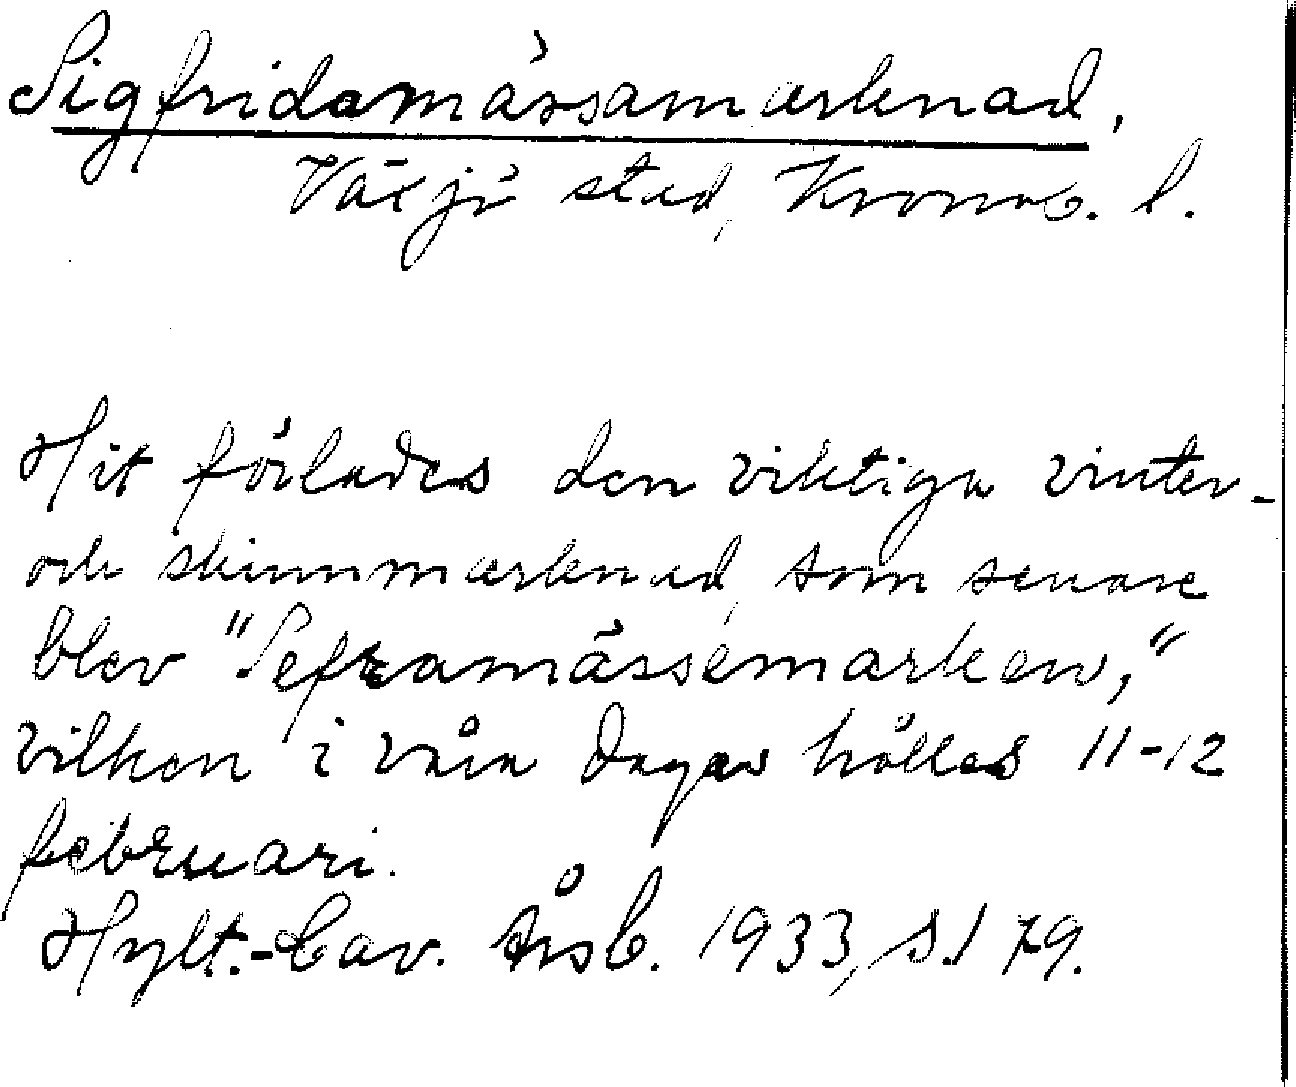 Sigfridsmässamarknad,
Växjö stad, Kronob. l.
Hit förlades den viktiga vinter-
och skinnmarknad, som senare
blev "Seframässemarken,"
vilken i våra dagar hålles 11-12
februari.
Hylt.-Cav. Årsb. 1933, s. 179.